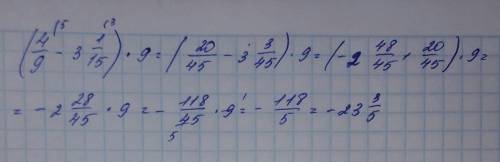 (4/9 ⁽⁵ - 3 1/15 ⁽³) · 9 = (20/45 - 3 3/45) · 9 = (-2 48/45 + 20/45) · 9 =
= -2 28/45 · 9 = - 118/45 5 · 9 1 = - 118/5 = -23 3/5